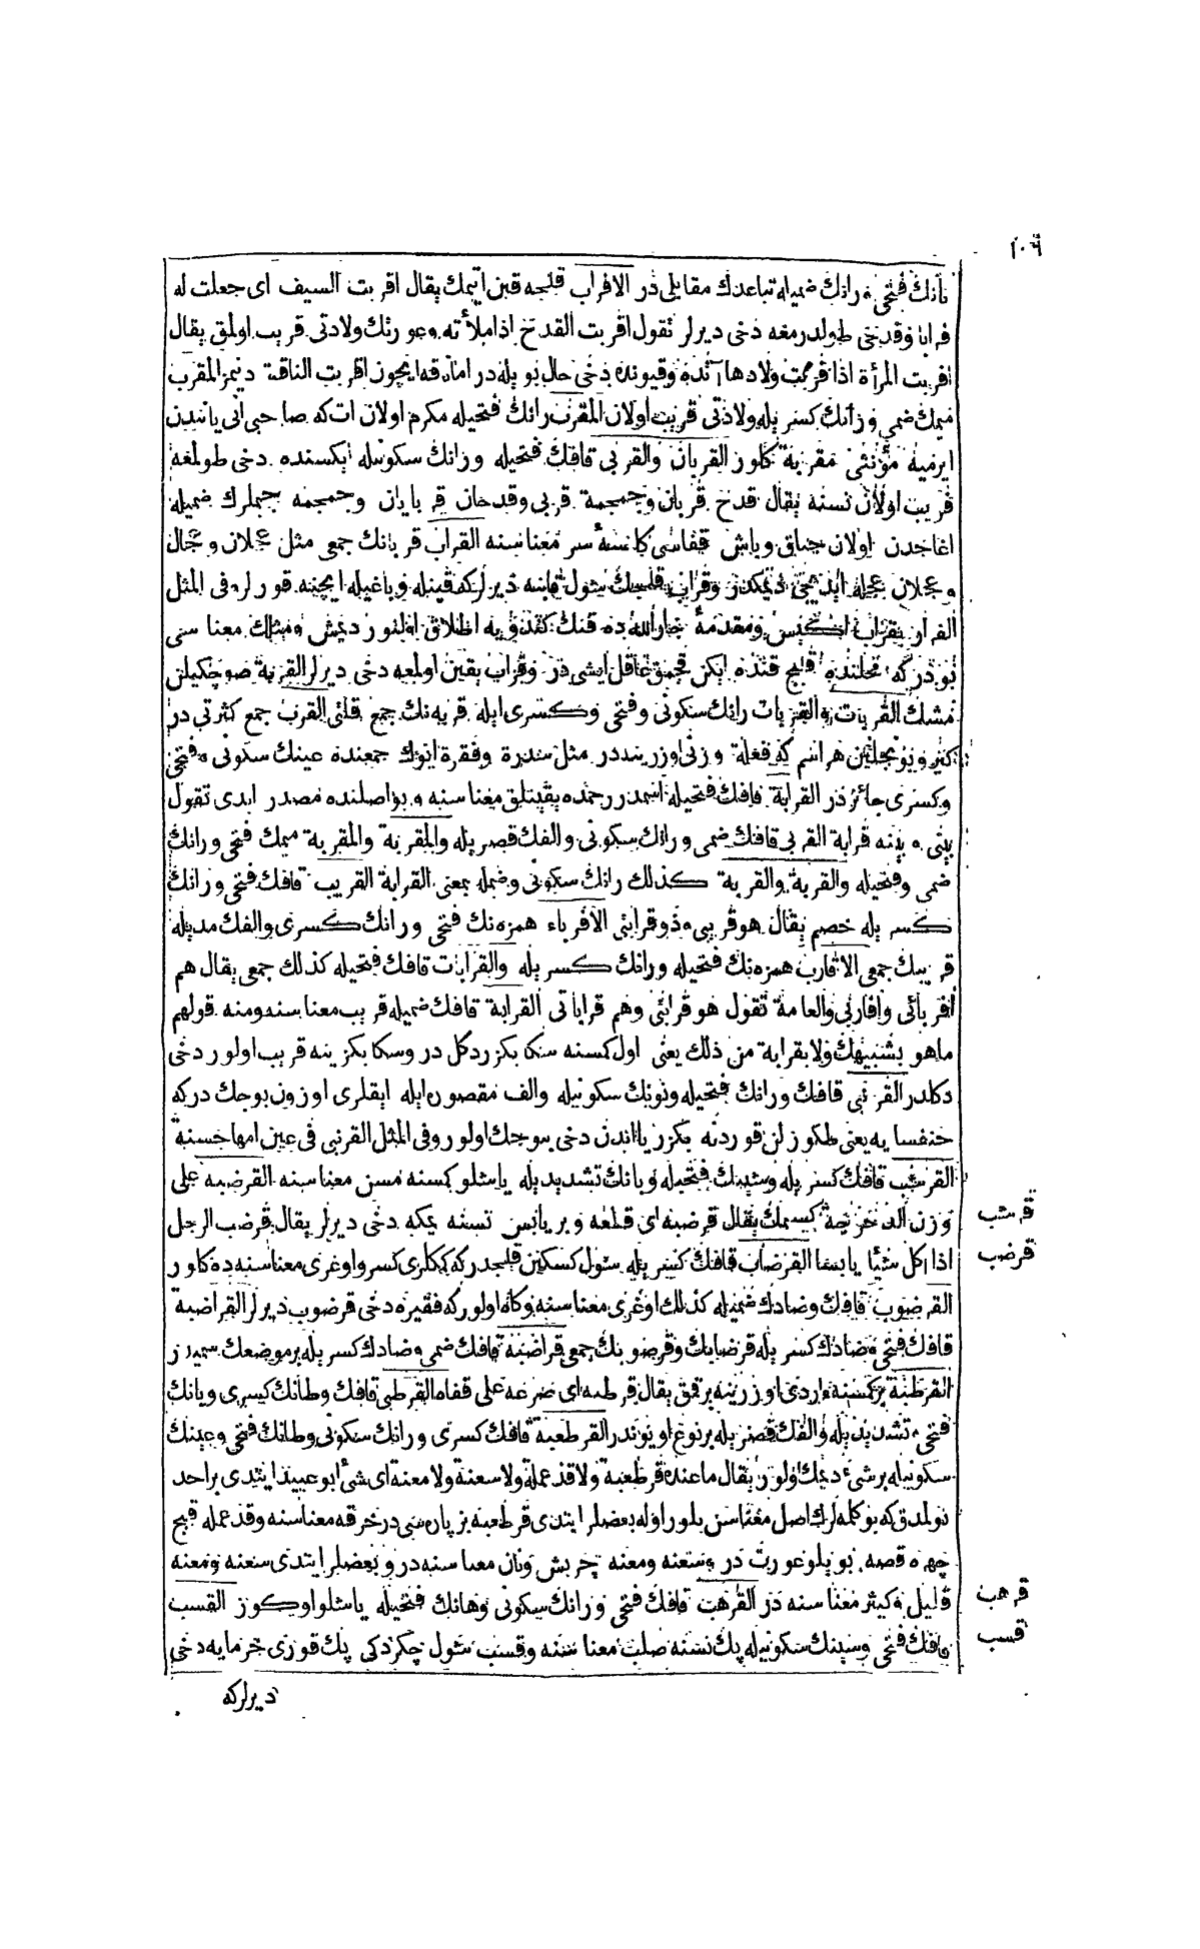 ١٠٦
تانك فتحى و رانك ضميله تباعدك مقابلى در الاقراب قلجه قين اتيمك يقال اقربت السيف اى جعلت له
قرابا و قدحى طولدرمغه دخى ديرلر تقول اقربت القدح اذا ملأته وعورتك ولادتى قريب اولمق يقال
اقربت المرأة اذا قربت ولادها آنده وقيونده دخى حال بويله در اما ناقه ايچون اقربت الناقة دينمز المقرب
ميمك ضمى و رانك كسر يله ولادتى قريب اولان المقرب رانك فتحيله مكرم اولان ات كه صاحبى انى يانندن
ايرميه مؤنثى مقربة كلور القربان والقربى قافك فتحيله و رانك سكونيله ايكسنده دخى طولمغه
قريب اولان نسنه يقال قدح قربان وجمجمة قربى وقدحان قربايان وجمجمه جيملرك ضميله
اغاجدن اولان چناق وباش قفاسى كاسۀ سر معناسنه القراب قربانك جمعى مثل عجلان وعجال
و عجلان عجله ايديجى ديمكدر وقراب قلجك شول قابنه ديرلر كه قينيله و باغيله ايچنه قورلر وفى المثل
الفرار بقراب اكيس ومقدمۀ جارالله ده قنك كندويه اطلاق اولنور ديمش ومثلك معناسى
بودر كه محلنده قاچ قنده ايكن قچمق عاقل ايشى در وقراب يقين اولمغه دخى ديرلر القربة صو چكيلن
مشك القربات والقربات رانك سكونى وفتحى وكسرى ايله قربه نك جمع قلتى القرب جمع كثرتى در
كثير وبونجلين هر اسم كه فعلة وزنى اوزرينه در مثل سدرة وفقرة انوك جمعنده عينك سكونى و فتحى
وكسرى جائز در القرابة قافك فتحيله اسمدر رحمده يقينلق معناسنه و بو اصلنده مصدر ايدى تقول
بينى و بينه قرابة القربى قافك ضمى و رانك سكونى والفك قصر يله والمقربة والمقربة ميمك فتحى ورانك
ضمى وفتحيله والقربة والقربة كذلك رانك سكونى وضمله بمعنى القرابة القريب قافك فتحى و رانك
كسر يله خصم يقال هو قريبى و ذو قرابتى الاقرباء همزه نك فتحى و رانك كسرى والفك مديله
قريبك جمعى الاقارب همزه نك فتحيله ورانك كسر يله والقرابات قافك فتحيله كذلك جمعى يقال هم
اقربائى واقاربى والعامة تقول هو قرابتى وهم قراباتى القرابة قافك ضميله قريب معناسنه ومنه قولهم
ماهو بشبيهك ولا بقرابة من ذلك يعنى اول كسنه سكا بكزر دكل در وسكا بكزرينه قريب اولور دخى
دكلدر القرنبى قافك ورانك فتحيله ونونك سكونيله والف مقصوره ايله ايقلرى اوزون بوجك دركه
خنفسايه يعنى طكوزلن قوردنه بكزر ياندن دخى بيوجك اولور وفى المثل القرنبى فى عين امها حسنة
القرشب قافك كسر يله وشينك فتحيله و بانك تشديديله ياشلو كمسنه مسن معناسنه القرضبه على
وزن الدحرجة كسمك يقال قرضبه اى قطعه و بر يابس نسنه يمكه دخى ديرلر يقال قرضب الرجل
اذا اكل شيئا يابسا القرضاب قافك كسر يله شول كسكين قلجدركه ككلرى كسر واوغرى معناسنه ده كلور
القرضوب قافك وضادك ضميله كذلك اوغرى معناسنه وكاه اولور كه فقيره دخى قرضوب ديرلر القراضبة
قافك فتحى و ضادك كسر يله قرضابك وقرضوبك جمعى قراضبة قافك ضمى وضادك كسر يله بر موضعك اسميدر
القرطبة بر كمسنه ارديى اوزرينه برقمق يقال قرطبه اى صرعه على قفاه القرطبى قافك وطانك كسرى وبانك
فتحى و تشديديله والفك قصر يله بر نوع اويوندر القرطعبة قافك كسرى ورانك سكونى وطانك فتحى وعينك
سكونيله بر شىء ديمك اولور يقال ما عنده قرطعبة ولا قذعملة ولا سعنة ولا معنة اى شئ ابو عبيد ايتدى بر احد
بولمدق كه بو كلمه لرك اصل معناسن بلور اوله بعضلر ايتدى قرطعبة بز پاره سى در خرقه معناسنه وقذعمله قبيح
چهره قصه بويلو عورت در و سعنه ومعنه معناسنه در و بعضلر ايتدى سعنه ومعنه
قليل و كثير معناسنه در القرهب قافك فتحى و رانك سكونى وهانك فتحيله ياشلو اوكوز القسب
قافك فتحى وسينك سكونيله پك نسنه صلب معناسنه وقسب شول چكردكى پك قورى خرمايه دخى
ديرلركه
قرشب
قرضب
قرهب
قسب